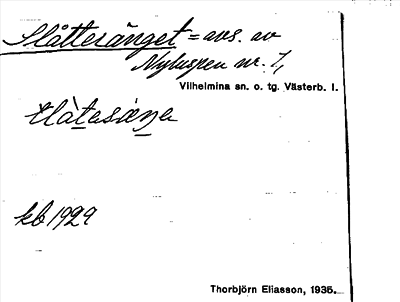 Slåttesänget = avs. av
Nyluspen nr. 1,
Vilhelmina sn. o. tg. Västerb. l.
kb 1929
Thorbjörn Eliasson, 1935.